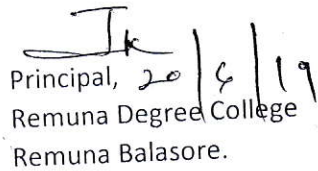 Principal, 20/6/19
Remuna Degree College
Remuna Balasore.